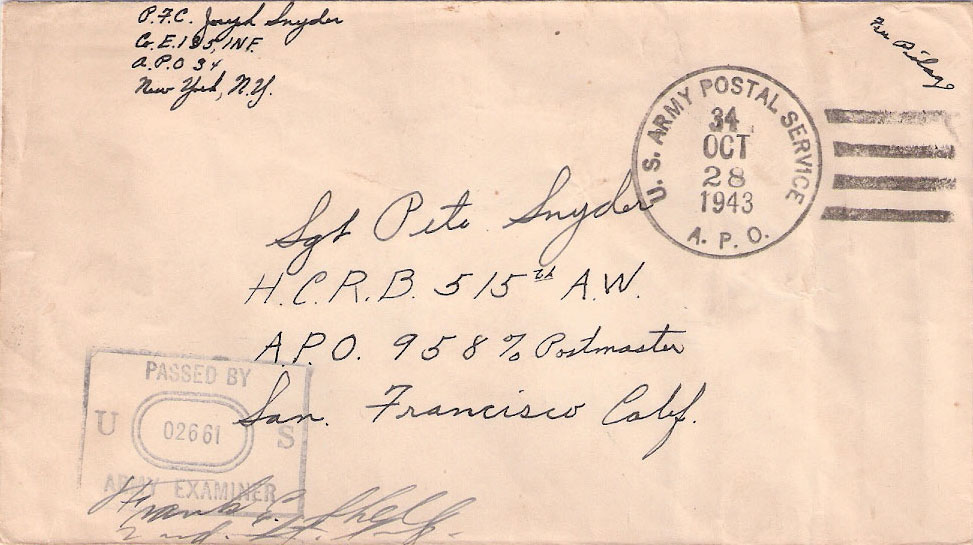 P.F.C. Joseph Snyder
Co. E. 135, INF.
A.P.O 34
New York, N.Y.
U. S. ARMY POSTAL SERVICE
34
OCT
28
1943
A. P. O.
Sgt Pete Snyder
H.C.R.B. 515th A.W.
A.P.O. 958 % Postmaster
San. Francisco Calif.
PASSED BY
U 02661 S
ARMY EXAMINER
Frank
2nd. Lt.